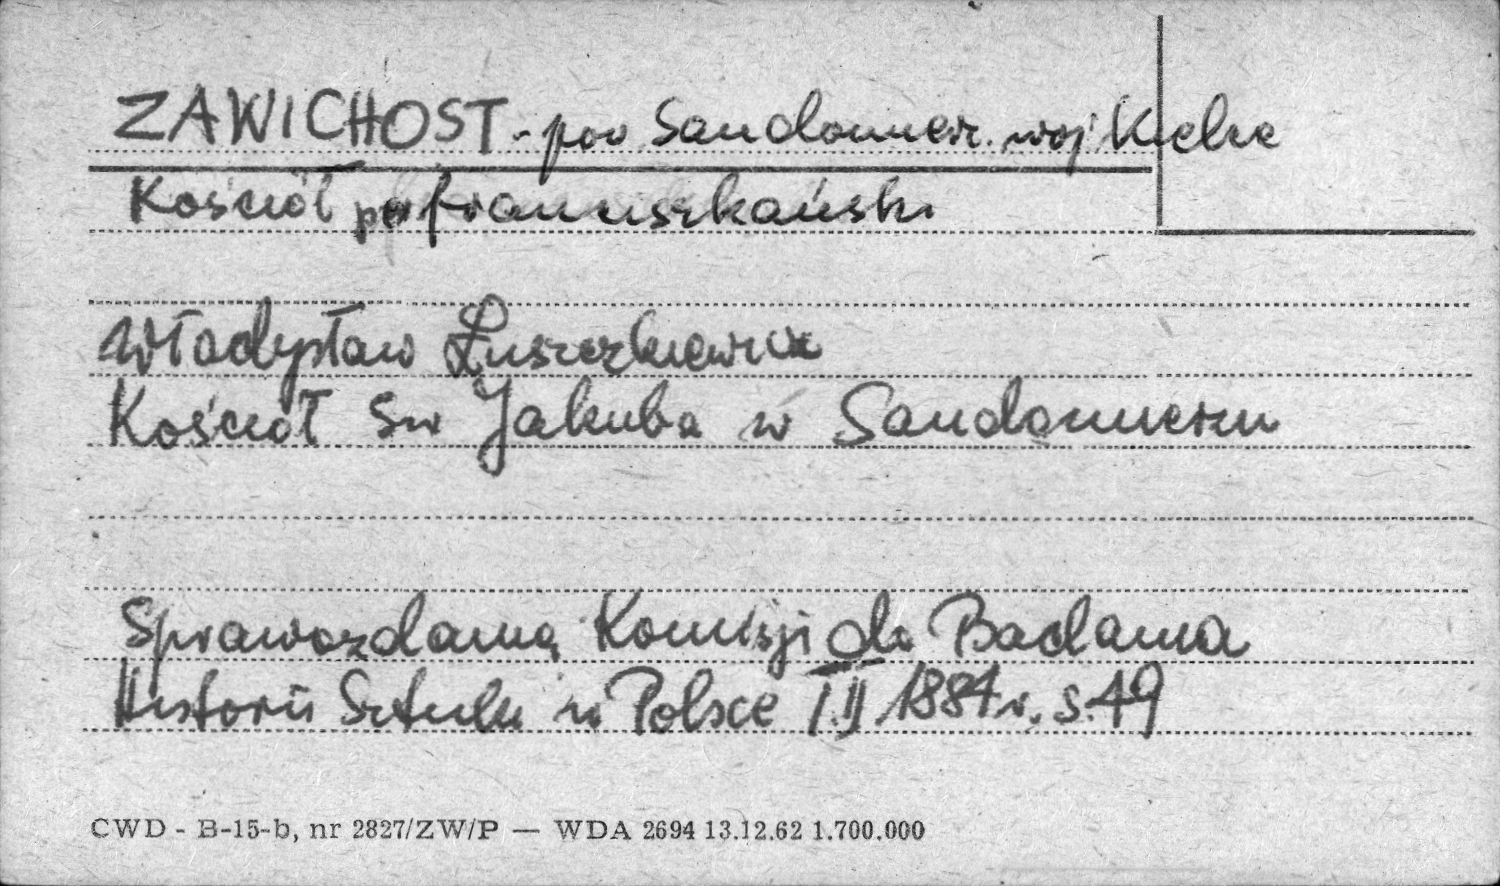 ZAWICHOST - pow Sandomierz. woj Kielce
Kościół pofranciszkański
Władysław Łuszczkiewicz
Kościół Św Jakuba w Sandomierzu
Sprawozdania Komisji do Badania
Historii Sztuki w Polsce T.II 1884 r. s.49
CWD - B-15-b, nr 2827/ZW/P — WDA 2694 13.12.62 1.700.000